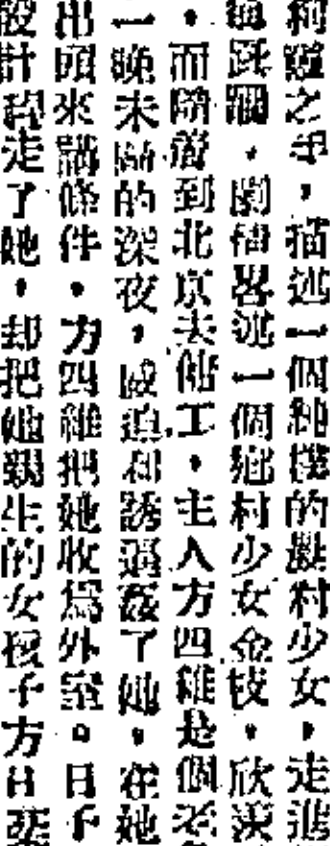 之年，描述一個純樸的農村少女，走進
．劇情畧述一個鄉村少女金枝，欣羨
，而陪着到北京去做工，主人方四維是個老
一晚未歸的深夜，威迫利誘逼姦了她，在她
出頭來講條件，方四維把她收爲外室。日子
設計趕走了她，却把她親生的女孩子方日